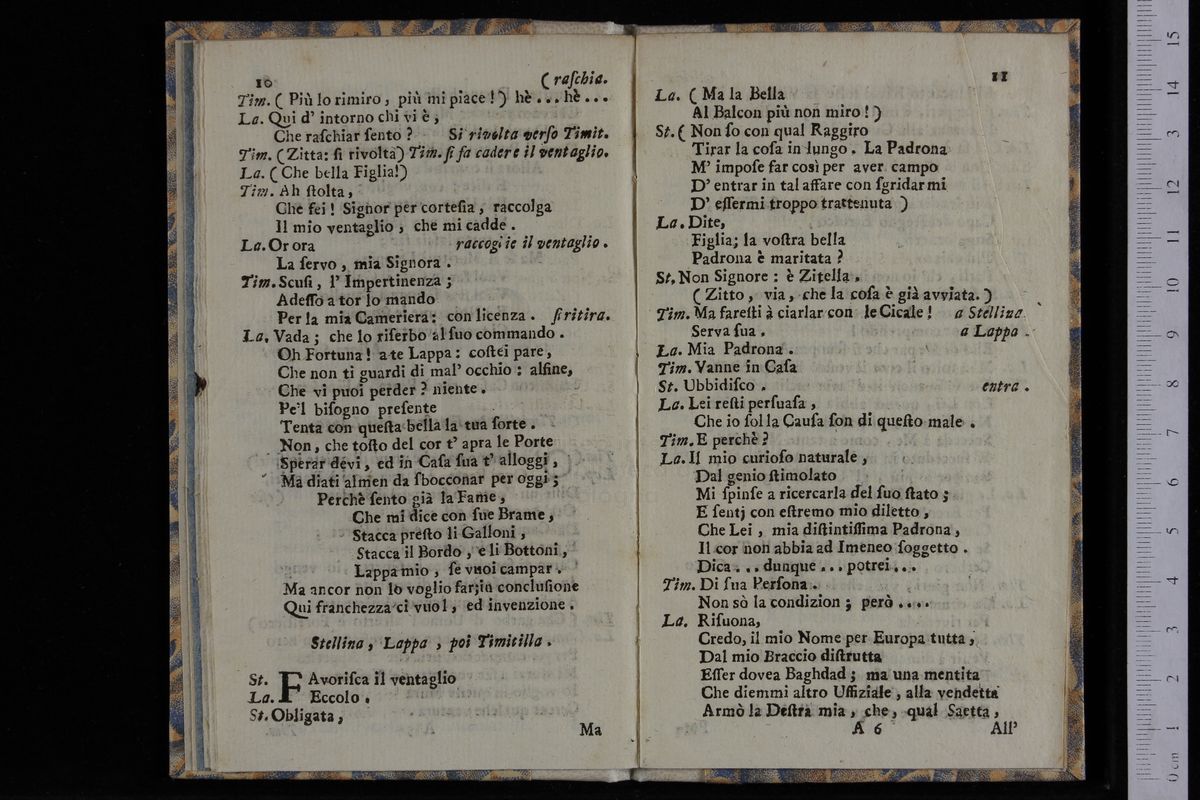 10
( raſchia.
Tim. ( Più lo rimiro, più mi piace ! ) hè ... hè ...
La. Qui d' intorno chi vi è,
Che raſchiar ſento ? Si rivolta verſo Timit.
Tim. ( Zitta: ſi rivolta) Tim. ſi fa cadere il ventaglio.
La. ( Che bella Figlia!)
Tim. Ah ſtolta,
Che fei ! Signor per corteſia, raccolga
Il mio ventaglio, che mi cadde.
La. Or ora raccoglie il ventaglio.
La ſervo, mia Signora.
Tim. Scuſi, l' Impertinenza;
Adeſſo a tor lo mando
Per la mia Cameriera: con licenza. ſi ritira.
La. Vada; che lo riſerbo al ſuo commando.
Oh Fortuna ! a te Lappa: coſtei pare,
Che non ti guardi di mal' occhio: alfine,
Che vi puoi perder ? niente.
Pe'l biſogno preſente
Tenta con queſta bella la tua ſorte.
Non, che toſto del cor t' apra le Porte
Sperar devi, ed in Caſa ſua t' alloggi,
Ma diati almen da ſbocconar per oggi;
Perchè ſento già la Fame,
Che mi dice con ſue Brame,
Stacca preſto li Galloni,
Stacca il Bordo, e li Bottoni,
Lappa mio, ſe vuoi campar.
Ma ancor non lo voglio far; in concluſione
Qui franchezza ci vuol, ed invenzione.
Stellina, Lappa, poi Timitilla.
St. FAvoriſca il ventaglio
La. Eccolo.
St. Obligata,
Ma
11
La. ( Ma la Bella
Al Balcon più non miro ! )
St. ( Non ſo con qual Raggiro
Tirar la coſa in lungo. La Padrona
M' impoſe far così per aver campo
D' entrar in tal affare con ſgridarmi
D' eſſermi troppo trattenuta )
La. Dite,
Figlia; la voſtra bella
Padrona è maritata ?
St. Non Signore: è Zitella.
( Zitto, via, che la coſa è già avviata. )
Tim. Ma fareſti à ciarlar con le Cicale ! a Stellina
Serva ſua. a Lappa.
La. Mia Padrona.
Tim. Vanne in Caſa
St. Ubbidiſco. entra.
La. Lei reſti perſuaſa,
Che io ſol la Cauſa ſon di queſto male.
Tim. E perchè ?
La. Il mio curioſo naturale,
Dal genio ſtimolato
Mi ſpinſe a ricercarla del ſuo ſtato;
E ſentj con eſtremo mio diletto,
Che Lei, mia diſtintiſſima Padrona,
Il cor non abbia ad Imeneo ſoggetto.
Dica ... dunque ... potrei ...
Tim. Di ſua Perſona.
Non sò la condizion; però ....
La. Riſuona,
Credo, il mio Nome per Europa tutta,
Dal mio Braccio diſtrutta
Eſſer dovea Baghdad; ma una mentita
Che diemmi altro Uffiziale, alla vendetta
Armò la Deſtra mia, che, qual Saetta,
A 6
All'